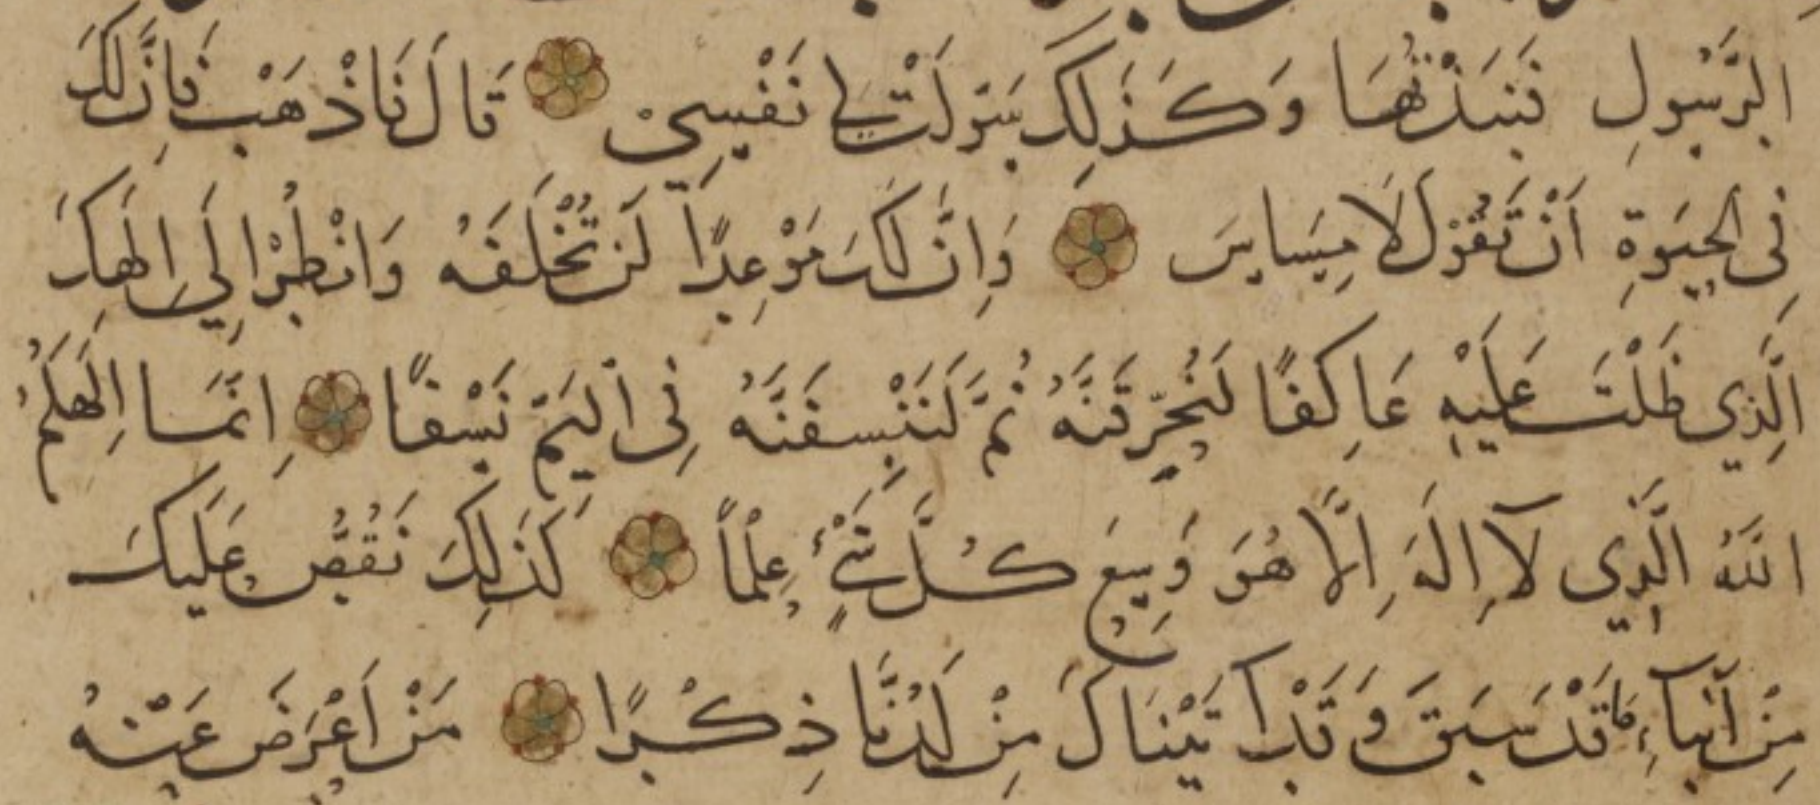 الرَّسُولِ فَنَبَذْتُهَا وَكَذَلِكَ سَوَّلَتْ لِي نَفْسِي قَالَ فَاذْهَبْ فَاِنَّ لَكَ
فِي الْحَيَوةِ اَنْ تَقُولَ لَا مِسَاسَ وَاِنَّ لَكَ مَوْعِدًا لَنْ تُخْلَفَهُ وَانْظُرْ اِلَي اِلَهِكَ
الَّذِي ظَلْتَ عَلَيْهِ عَاكِفًا لَنُحَرِّقَنَّهُ ثُمَّ لَنَنْسِفَنَّهُ فِي الْيَمِّ نَسْفًا اِنَّمَا اِلَهُكُمُ
اللَّهُ الَّذِي لَا اِلَهَ اِلَّا هُوَ وَسِعَ كُلَّ شَيْءٍ عِلْمًا كَذَلِكَ نَقُصُّ عَلَيْكَ
مِنْ اَنْبَاءِ مَا قَدْ سَبَقَ وَقَدْ اَتَيْنَاكَ مِنْ لَدُنَّا ذِكْرًا مَنْ اَعْرَضَ عَنْهُ